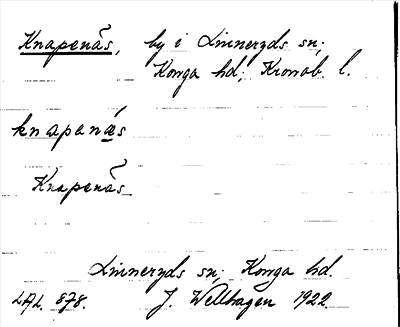 Knapenäs, by i Linneryds sn;
Konga hd; Kronob. l.
knapenǽs
Knapenäs
Linneryds sn; Konga hd.
LAL. 878. J. Wellhagen 1922.